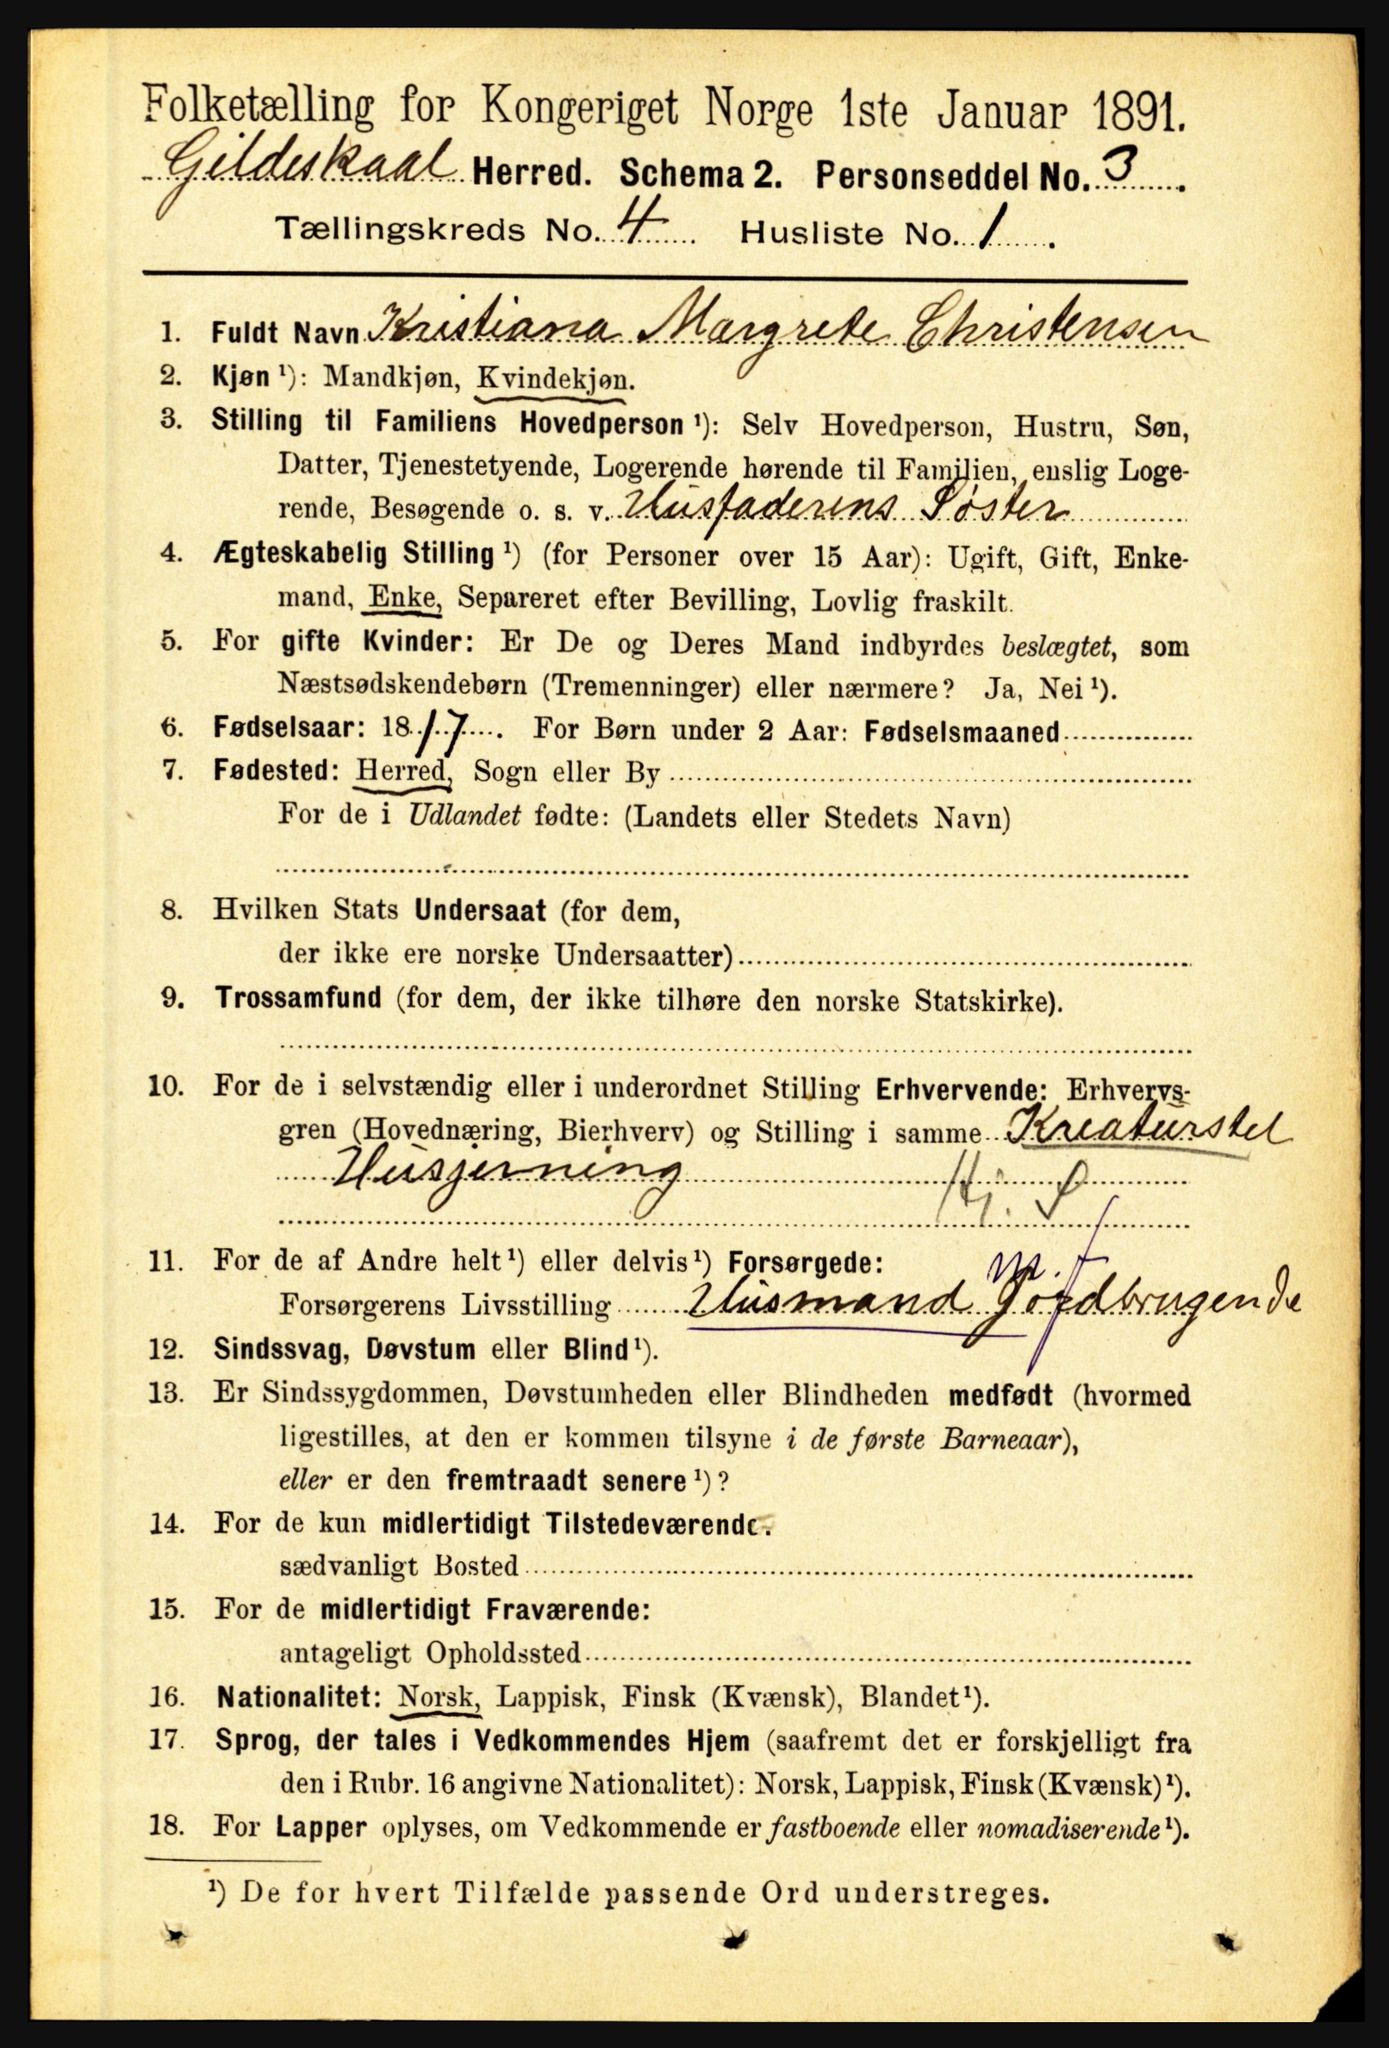 Folketælling for Kongeriget Norge 1ste Januar 1891.
Gildeskaal Herred. Schema 2. Personseddel No. 3.
Tællingskreds No. 4 Husliste No. 1.
1. Fuldt Navn Kristiana Margrete Christensen
2. Kjøn ¹): Mandkjøn, Kvindekjøn.
3. Stilling til Familiens Hovedperson ¹): Selv Hovedperson, Hustru, Søn,
Datter, Tjenestetyende, Logerende hørende til Familien, enslig Loge-
rende, Besøgende o. s. v. Husfaderens Søster
4. Ægteskabelig Stilling ¹) (for Personer over 15 Aar): Ugift, Gift, Enke-
mand, Enke, Separeret efter Bevilling, Lovlig fraskilt.
5. For gifte Kvinder: Er De og Deres Mand indbyrdes beslægtet, som
Næstsødskendebørn (Tremenninger) eller nærmere? Ja, Nei ¹).
6. Fødselsaar: 1817. For Børn under 2 Aar: Fødselsmaaned
7. Fødested: Herred, Sogn eller By
For de i Udlandet fødte: (Landets eller Stedets Navn)
8. Hvilken Stats Undersaat (for dem,
der ikke ere norske Undersaatter)
9. Trossamfund (for dem, der ikke tilhøre den norske Statskirke).
10. For de i selvstændig eller i underordnet Stilling Erhvervende: Erhvervs-
gren (Hovednæring, Bierhverv) og Stilling i samme Kreaturstel
Husgjerning Hj. S
11. For de af Andre helt ¹) eller delvis ¹) Forsørgede:
Forsørgerens Livsstilling Husmand m. Jordbrugende
12. Sindssvag, Døvstum eller Blind ¹).
13. Er Sindssygdommen, Døvstumheden eller Blindheden medfødt (hvormed
ligestilles, at den er kommen tilsyne i de første Barneaar),
eller er den fremtraadt senere ¹)?
14. For de kun midlertidigt Tilstedeværende.
sædvanligt Bosted
15. For de midlertidigt Fraværende:
antageligt Opholdssted
16. Nationalitet: Norsk, Lappisk, Finsk (Kvænsk), Blandet ¹).
17. Sprog, der tales i Vedkommendes Hjem (saafremt det er forskjelligt fra
den i Rubr. 16 angivne Nationalitet): Norsk, Lappisk, Finsk (Kvænsk) ¹).
18. For Lapper oplyses, om Vedkommende er fastboende eller nomadiserende ¹).
¹) De for hvert Tilfælde passende Ord understreges.